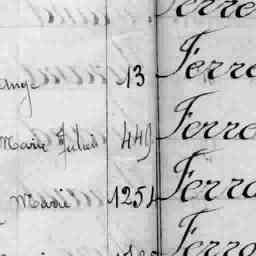 Ferre
Ange 13 Ferre
Marie Julien 449 Ferre
Marie 1254 Ferre
Ferro